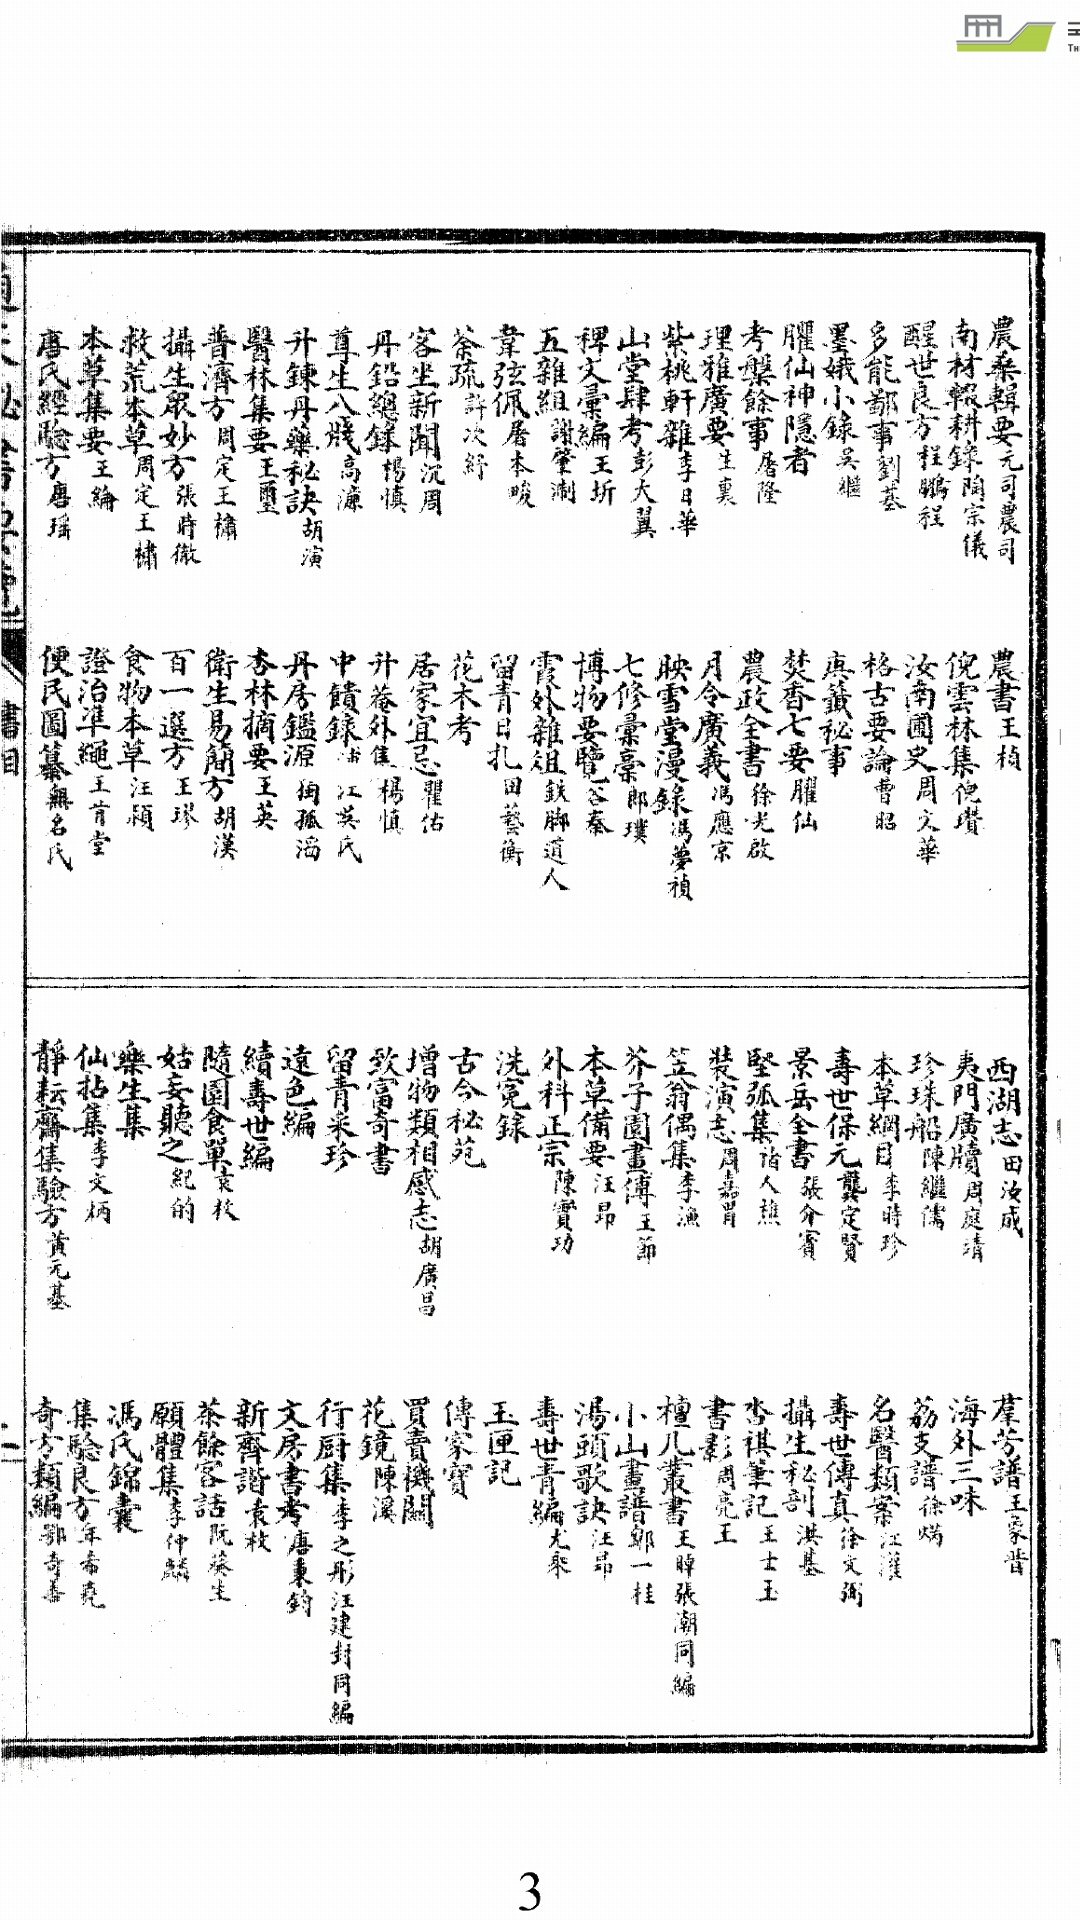 農桑輯要元司農司
南村輟耕錄陶宗儀
醒世良方程鵬程
多能鄙事劉基
墨娥小錄吳繼
臞仙神隱者
考槃餘事屠隆
理雅廣要生裏
紫桃軒雜李日華
山堂肆考彭大翼
稗文彙編王圻
五雜組謝肇淛
韋弦佩屠本畯
茶疏許次紓
客坐新聞沉周
丹鉛總錄楊慎
尊生八牋高濂
升鍊丹藥秘訣胡演
醫林集要王璽
普濟方周定王橚
攝生眾妙方張時徹
救荒本草周定王橚
本草集要王綸
唐氏經驗方唐瑶
農書王楨
倪雲林集倪瓚
汝南圃史周文華
格古要論曹昭
典籤秘事
焚香七要臞仙
農政全書徐光啟
月令廣義馮應京
映雪堂漫錄馮夢禎
七修彙稾郎璞
博物要覽谷泰
霞外雜俎鉄脚道人
留青日扎田藝衡
花木考
居家宜忌瞿佑
升菴外集楊慎
中饋錄 江吳氏
丹房鑑源獨孤滔
杏林摘要王英
衛生易簡方胡濙
百一選方王璆
食物本草汪潁
證治準繩王肯堂
便民圖纂無名氏
西湖志田汝成
夷門廣牘周庭靖
珍珠船陳繼儒
本草綱目李時珍
壽世保元龔定賢
景岳全書張介賓
堅瓠集諸人穫
裝演志周嘉胃
笠翁偶集李漁
芥子園畫傅王節
本草備要汪昂
外科正宗陳實功
洗冤録
古今秘苑
增物類相感志胡廣昌
致富奇書
留青采珍
遠色編
續壽世編
隨園食單袁枚
姑妄聽之紀的
樂生集
仙拈集李文炳
靜耘齋集驗方黄元基
羣芳譜王象晉
海外三味
荔支譜徐𤊹
名醫類案江瓘
壽世傳真徐文弼
攝生秘剖洪基
香祖筆記王士玉
書影周亮王
檀几叢書王晫張潮同編
小山畫譜鄒一桂
湯頭歌訣汪昂
壽世青編尤乘
玉匣記
傳家寶
買賣機關
花鏡陳溪
行厨集李之彤汪建封同編
文房書考唐秉鈞
新齊諧袁枚
茶餘客話阮葵生
願體集李仲麟
馮氏錦囊
集驗良方年希堯
奇方類編鄂奇善
書目
3